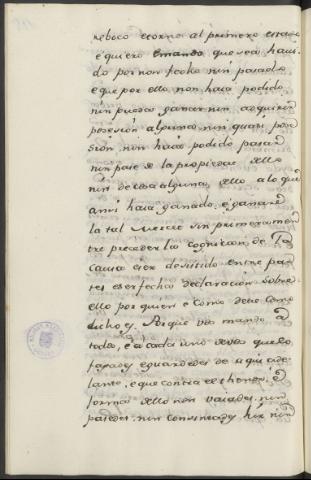 reboco e torno al primero estado
é quiero é mando que sea havi-
do por non fecho nin pasado
e que por ello non haia podido
nin pueda ganar nin adquirir
posesion alguna nin quasi pose
sion, nin haia podido pasar
nin pase de la propiedad dello
nin de cosa alguna dello a lo que
ansi haia ganado, é ganare
la tal merced sin primeramen
tre preceder la cognicion de la
causa é ser devatido entre par
tes é ser fecha declaracion sobre
ello por quien é como deve como
dicho es. Porque vos mando á
todos, é a cada uno de vos que lo
fagades é guardedes de aqui ade
lante, é que contra el thenor, é
forma dello non vaiades, nin
pasedes, nin consintades hir nin